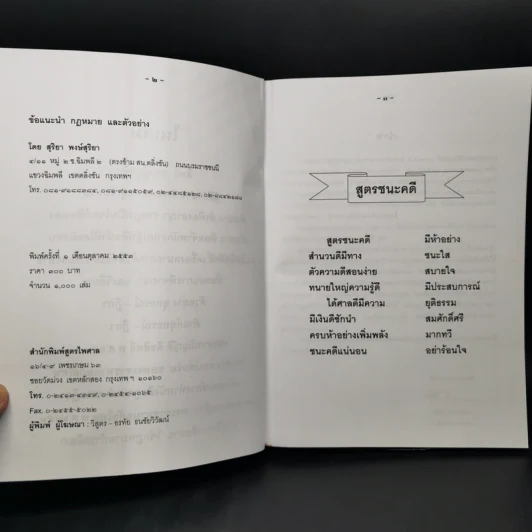 - ๒ -
ข้อแนะนำ กฎหมาย และตัวอย่าง
โดย สุริยา พงษ์สุริยา
๔/๑๑ หมู่ ๒ ซ.ฉิมพลี ๒ (ตรงข้าม สน.ตลิ่งชัน) ถนนบรมราชชนนี
แขวงฉิมพลี เขตตลิ่งชัน กรุงเทพฯ
พิมพ์ครั้งที่ ๑ เดือนตุลาคม ๒๕๕๓
ราคา ๓๐๐ บาท
จำนวน ๑,๐๐๐ เล่ม
สำนักพิมพ์สูตรไพศาล
๑๖/๔-๙ เพชรเกษม ๖๓
ซอยวัดม่วง เขตหลักสอง กรุงเทพ ฯ ๑๐๑๖๐
โทร. ๐-๒๔๑๓-๔๓๑๙, ๐-๒๔๕๔-๑๐๖๕
Fax. ๐-๒๔๕๕-๕๐๒๒
ผู้พิมพ์ ผู้โฆษณา : วิสูตร - อรทัย ธนชัยวิวัฒน์
- ๓ -
สูตรชนะคดี
สูตรชนะคดี มีห้าอย่าง
สำนวนดีมีทาง ชนะใส
ตัวความดีสอนง่าย สบายใจ
ทนายใหญ่ความรู้ดี มีประสบการณ์
ได้ศาลดีมีความ ยุติธรรม
มีเงินดีชักนำ สมศักดิ์ศรี
ครบห้าอย่างเพิ่มพลัง มากทวี
ชนะคดีแน่นอน อย่าร้อนใจ